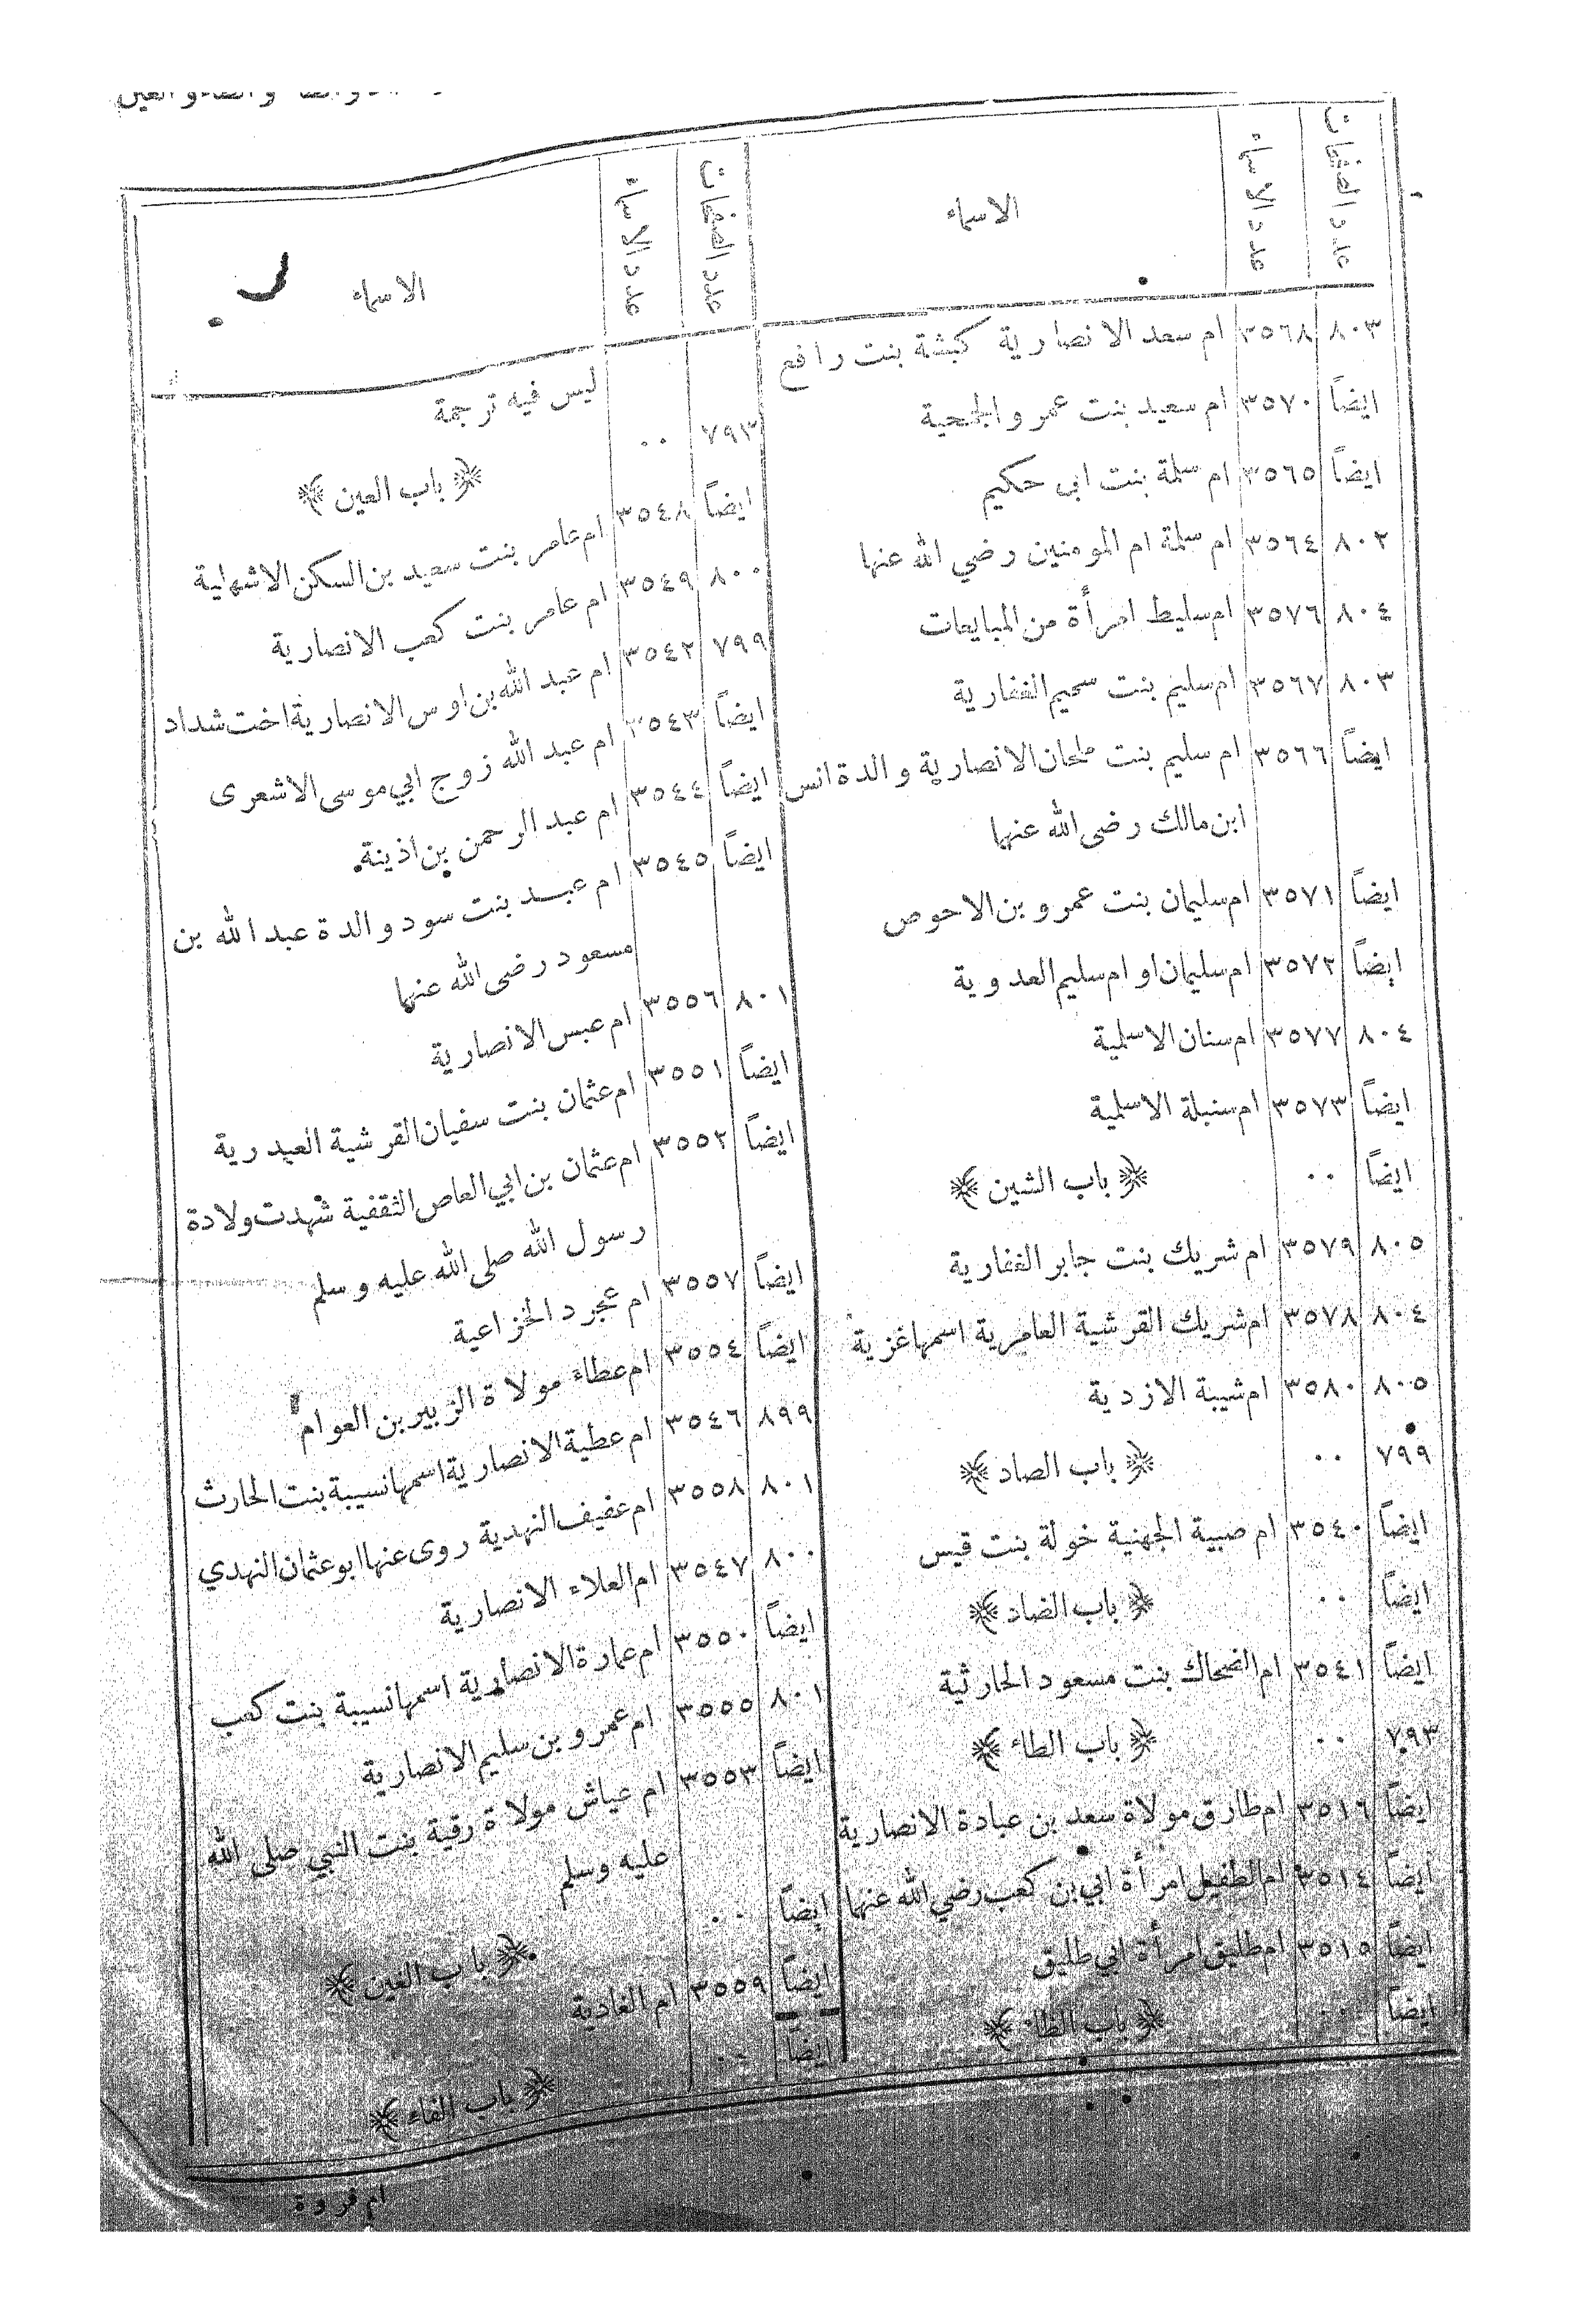 والعين
عدد الصفحات عدد الاسماء الاسماء
٨٠٣ ٣٥٦٨ ام سعد الانصارية كبشة بنت رافع
ايضاً ٣٥٧٠ ام سعيد بنت عمرو الجمحية
ايضاً ٣٥٦٥ ام سلمة بنت ابى حكيم
٨٠٢ ٣٥٦٤ ام سلمة ام المومنين رضي الله عنها
٨٠٤ ٣٥٧٦ ام سليط امرأة من المبايعات
٨٠٣ ٣٥٦٧ ام سليم بنت سحيم الغفارية
ايضاً ٣٥٦٦ ام سليم بنت ملحان الانصارية والدة انس
ابن مالك رضى الله عنهما
ايضاً ٣٥٧١ ام سليمان بنت عمرو بن الاحوص
ايضاً ٣٥٧٢ ام سليمان او ام سليم العدوية
٨٠٤ ٣٥٧٧ ام سنان الاسلمية
ايضاً ٣٥٧٣ ام سنبلة الاسلمية
ايضاً ٠٠ ﴿ باب الشين ﴾
٨٠٥ ٣٥٧٩ ام شريك بنت جابر الغفارية
٨٠٤ ٣٥٧٨ ام شريك القرشية العامرية اسمها غزية
٨٠٥ ٣٥٨٠ ام شيبة الازدية
٧٩٩ ٠٠ ﴿ باب الصاد ﴾
ايضاً ٣٥٤٠ ام صبية الجهنية خولة بنت قيس
ايضاً ٠٠ ﴿ باب الضاد ﴾
ايضاً ٣٥٤١ ام الضحاك بنت مسعود الحارثية
٧٩٣ ٠٠ ﴿ باب الطاء ﴾
ايضاً ٣٥١٦ ام طارق مولاة سعد بن عبادة الانصارية
ايضاً ٣٥١٤ ام الطفيل امرأة ابي بن كعب رضي الله عنهما
ايضاً ٣٥١٥ ام طليق امرأة ابي طليق
ايضاً ٠٠ ﴿ باب الظاء ﴾
عدد الصفحات عدد الاسماء الاسماء
ليس فيه ترجمة
٧٩٣ ٠٠ ﴿ باب العين ﴾
ايضاً ٣٥٤٨ ام عامر بنت سعيد بن السكن الاشهلية
٨٠٠ ٣٥٤٩ ام عامر بنت كعب الانصارية
٧٩٩ ٣٥٤٢ ام عبد الله بن اوس الانصارية اخت شداد
ايضاً ٣٥٤٣ ام عبد الله زوج ابي موسى الاشعرى
ايضاً ٣٥٤٤ ام عبد الرحمن بن اذينة
ايضاً ٣٥٤٥ ام عبد بنت سود والدة عبد الله بن
مسعود رضى الله عنهما
٨٠١ ٣٥٥٦ ام عبس الانصارية
ايضاً ٣٥٥١ ام عثمان بنت سفيان القرشية العبدرية
ايضاً ٣٥٥٢ ام عثمان بن ابي العاص الثقفية شهدت ولادة
رسول الله صلى الله عليه وسلم
ايضاً ٣٥٥٧ ام عجرد الخزاعية
ايضاً ٣٥٥٤ ام عطاء مولاة الزبير بن العوام
٨٩٩ ٣٥٤٦ ام عطية الانصارية اسمها نسيبة بنت الحارث
٨٠١ ٣٥٥٨ ام عفيف النهدية روى عنها ابو عثمان النهدي
٨٠٠ ٣٥٤٧ ام العلاء الانصارية
ايضاً ٣٥٥٠ ام عمارة الانصارية اسمها نسيبة بنت كعب
٨٠١ ٣٥٥٥ ام عمرو بن سليم الانصارية
ايضاً ٣٥٥٣ ام عياش مولاة رقية بنت النبي صلى الله
عليه وسلم
ايضاً ٠٠ ﴿ باب الغين ﴾
ايضاً ٣٥٥٩ ام الغادية
ايضاً ٠٠ ﴿ باب الفاء ﴾
ام فروة